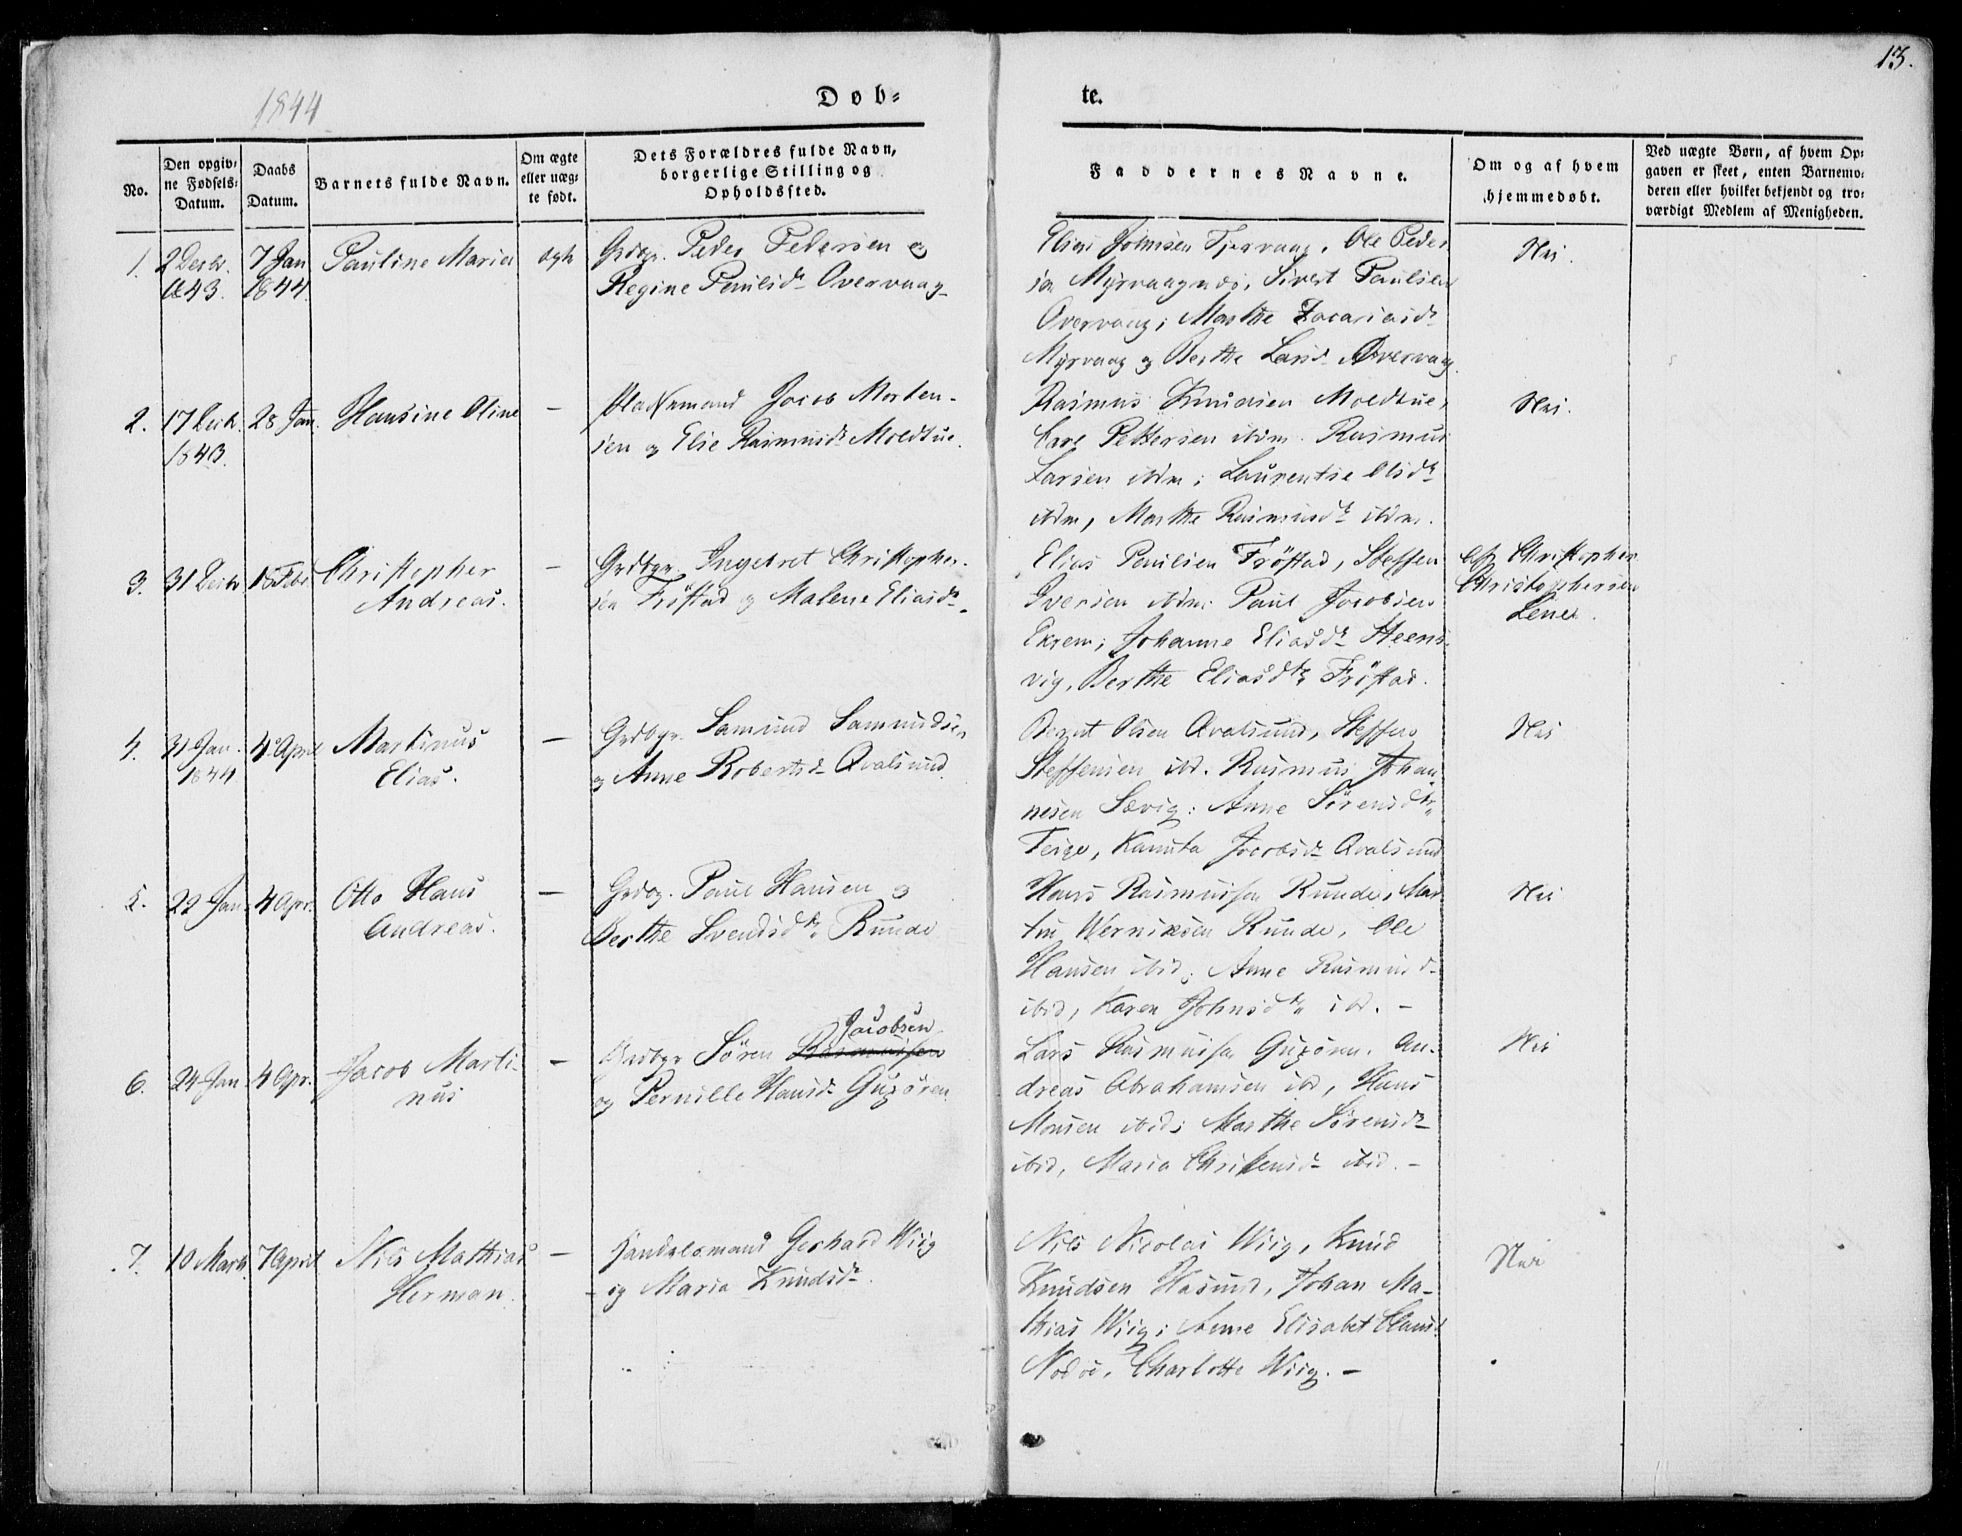 13.
1844
Døb=
te.
No.
Den opgiv=
ne Fødsels=
Datum.
Daabs
Datum.
Barnets fulde Navn.
Om ægte
eller uæg=
te født.
Dets Forældres fulde Navn,
borgerlige Stilling og
Opholdssted.
Faddernes Navne.
Om og af hvem
hjemmedøbt.
Ved uægte Børn, af hvem Op=
gaven er skeet, enten Barnemo=
deren eller hvilket bekjendt og tro=
værdigt Medlem af Menigheden.
1.
2 Decbr.
1843.
7 Jan
1844.
Pauline Maria
ægte
Grdbgr. Peder Pedersen og
Regine Paulsdr Overvaag
Elias Johnsen Tjervaag, Ole Peder
sen Myrvaagnes, Sivert Paulsen
Overvaag; Marthe Zacariasdr
Myrvaag og Berthe Larsdr Overvaag.
Nei.
2.
17 Decbr.
1843.
28 Jan.
Hansine Oline
—
Pladsemand Jacob Morten-
sen og Elie Rasmusdr Moldtue.
Rasmus Knudsen Moldtue,
Carl Pettersen ibdm. Rasmus
Larsen ibdm; Laurentse Olsdr
ibdm, Marthe Rasmusdr ibdm.
Nei.
3.
31 Decbr
18 Febr
Christopher
Andreas.
—
Grdbgr. Ingebret Christopher-
sen Frøstad og Malene Eliasdr.
Elias Paulsen Frøstad, Steffen
Iversen ibdm: Paul Jacobsen
Ekrem; Johanne Eliasdr Steens-
vig, Berthe Eliasdtr Frøstad.
af Christopher
Christophersen
Leine.
4.
31 Jan.
1844
4 April
Martinus
Elias.
—
Grdbgr. Samund Samundsen
og Anne Robertsdr Qvalsund.
Olsen Qvalsund, Steffen
Steffensen ibd. Rasmus Johan-
nesen Sævig: Anne Sørensdtr
Teige, Kanuta Jacobsdr Qvalsund
Nei
5.
22 Jan.
4 Apr.
Otto Hans
Andreas.
—
Grdbg. Paul Hansen og
Berthe Svendsdtr Runde
Hans Rasmussen Runde, Mar
tin Werniksen Runde, Ole
Hansen ibid; Anne Rasmusd-
ibid, Karen Johnsdtr ibd. -
Nei
6.
24 Jan
4 Apr.
Jacob Marti-
nus
—
Jacobsen
Grdbgr Søren Rasmussen
og Pernille Hansdr Gurzøen
Lars Rasmussen Gurzøen. An-
dreas Abrahamsen ibd, Hans
Monsen ibid; Marthe Sørensdr
ibid, Maria Christensdr ibid. -
Nei
7.
10 Marts
7 April
Nils Mathias
Herman.
—
Handelsmand Gerhard Wiig
og Maria Knudsdr.
Nils Nicolai Wiig, Knud
Knudsen Hasund, Johan Ma-
thias Wiig; Anne Elisabet Clausd.
Nodøe, Charlotte Wiig. -
Nei